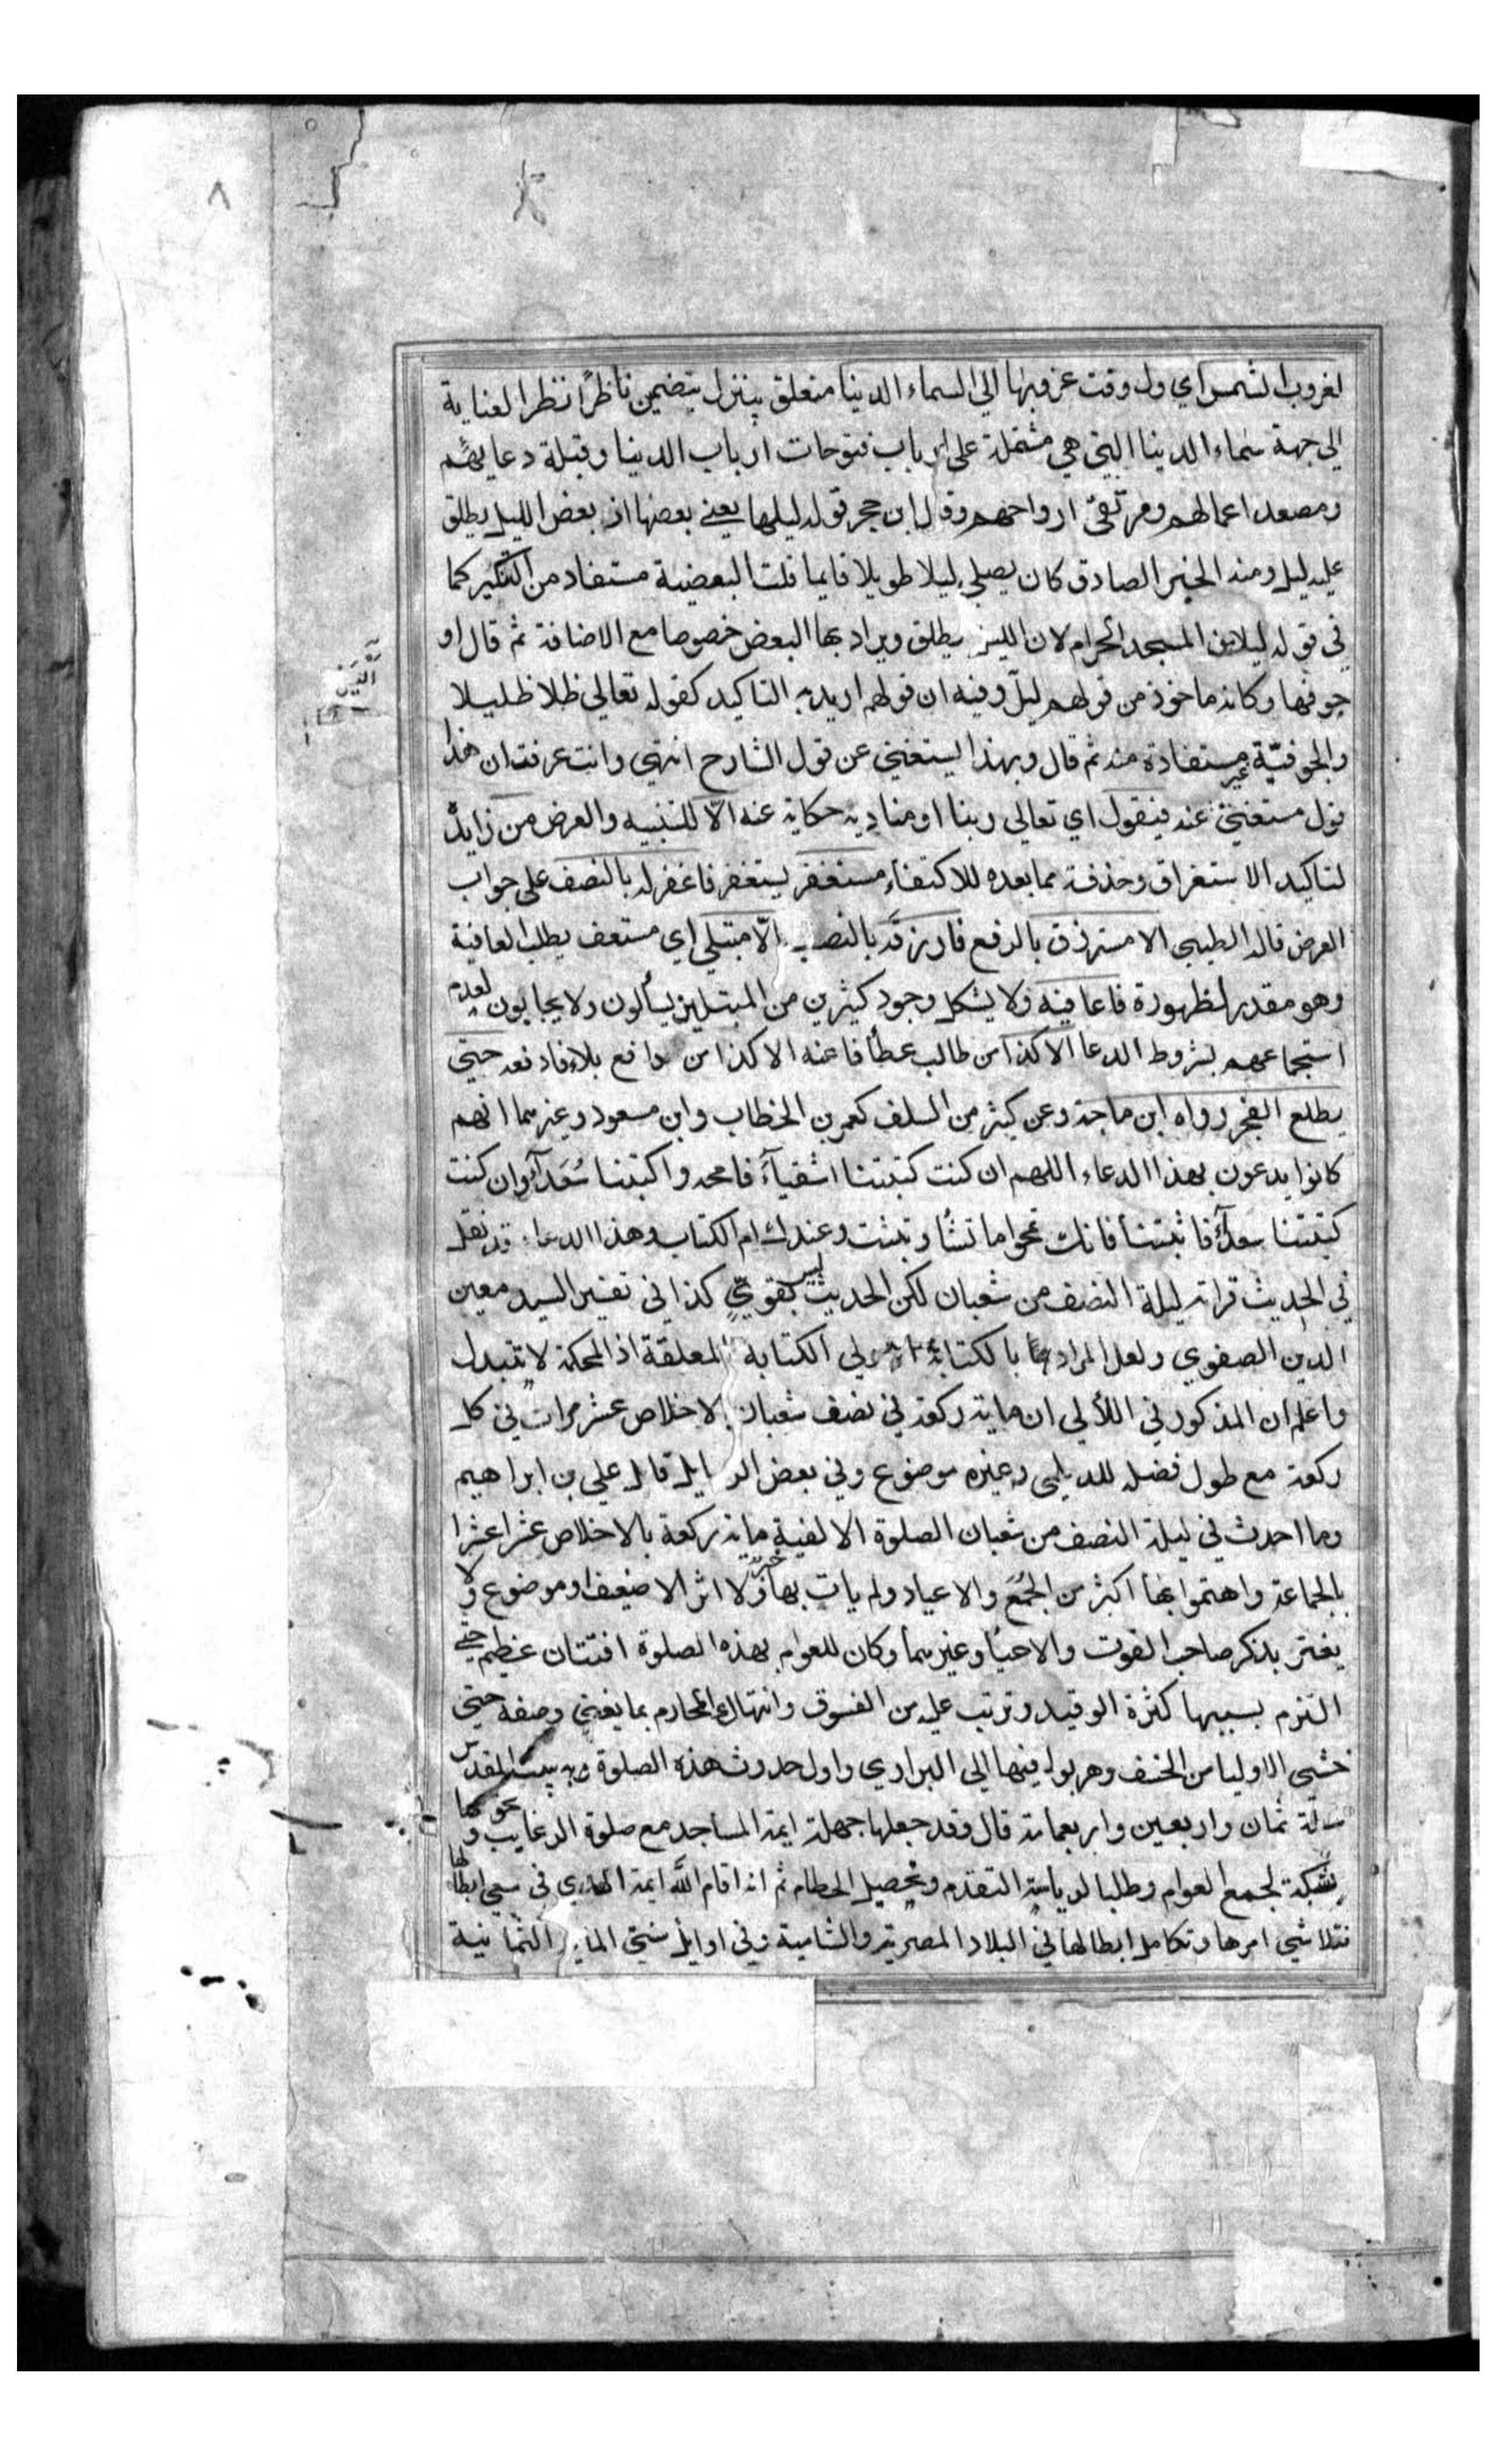 ٨
لغروب الشمس اي ول وقت غروبها الي السماء الدنيا متعلق بينزل يتضمن ناظرا نظر العناية
الي جهة سماء الدنيا التي هي مشتملة علي ارباب فتوحات ارباب الدنيا وقبلة دعايهم
ومصعد اعمالهم ومرتقي ارواحهم وقال ابن حجر قوله ليلها يعني بعضها اذ بعض الليل يطلق
عليه ليل ومنه الخبر الصادق كان يصلي ليلا طويلا قايما قلت البعضية مستفاد من التنكير كما
في قوله ليلا من المسجد الحرام لان الليل يطلق ويراد بها البعض خصوصا مع الاضافة ثم قال او
جوفها وكانه ماخوذ من قولهم ليل وفيه ان قولهم اريد به التاكيد كقوله تعالي ظلا ظليلا
والجوفية غير مستفادة منه ثم قال وبهذا يستغني عن قول الشارح انتهي وانت عرفت ان هذا
قول مستغني عنه فيقول اي تعالي ربنا او مناديه حكاية عنه الا للتنبيه والعرض من زايدة
لتاكيد الاستغراق وحذفت مما بعده للاكتفاء مستغفر يستغفر فاغفر له بالنصف علي جواب
العرض قاله الطيبي الا مسترزق بالرفع فارزقه بالنصب الا مبتلي اي مستعف يطلب العافية
وهو مقدر لظهوره فاعافيه ولا يشكل وجود كثيرين من المبتلين يسألون ولا يجابون لعدم
استجماعهم لشروط الدعا الا كذا من طالب عطأ فاعنه الا كذا من دافع بلاء فادفعه حتي
يطلع الفجر رواه ابن ماجة وعن كثير من السلف كعمر بن الخطاب وابن مسعود وغيرهما انهم
كانوا يدعون بهذا الدعاء اللهم ان كنت كتبتنا اشقيآء فامحه واكتبنا سعدآء وان كنت
كتبتنا سعدآء فاثبتنا فانك تمحوا ما تشأ وتثبت وعندك ام الكتاب وهذا الدعاء قد نقل
في الحديث قراته ليلة النصف من شعبان لكن الحديث ليس بقوي كذا في تفسير السيد معين
الدين الصفوي ولعل المراد بالكتابة الكتابة المعلقة اذ المحكمة لا تتبدل
واعلم ان المذكور في اللألي ان ماية ركعة في نصف شعبان بالاخلاص عشر مرات في كل
ركعة مع طول فضله للديلمي وغيره موضوع وفي بعض الرسايل قال علي بن ابراهيم
وما احدث في ليلة النصف من شعبان الصلوة الالفية ماية ركعة بالاخلاص عشرا عشرا
بالجماعة واهتموا بها اكثر من الجمع والاعياد ولم يات بها خبر ولا اثر الا ضعيف او موضوع ولا
يغتر بذكر صاحب القوت والاحيأ وغيرهما وكان للعوام بهذه الصلوة افتتان عظيم حتي
التزم بسببها كثرة الوقيد وترتب عليه من الفسوق وانتهاك المحارم بما يغني وصفه حتي
خشي الاوليا من الخسف وهربوا فيها الي البراري واول حدوث هذه الصلوة ببيت المقدس
سنة ثمان واربعين واربعماية قال وقد جعلها جهلة ايمة المساجد مع صلوة الرغايب ونحوها
شبكة لجمع العوام وطلبا لرياسة التقدم وتحصيل الحطام ثم انه اقام الله ايمة الهدي في سعي ابطالها
فتلاشي امرها وتكامل ابطالها في البلاد المصرية والشامية وفي اوايل سني الماية الثمانية